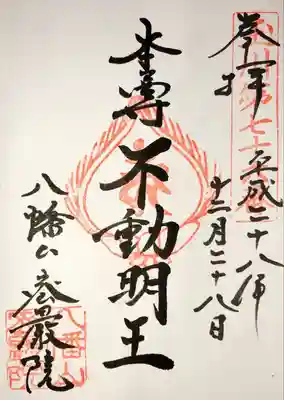 奉拝
平成二十八年
十二月二十八日
本尊 不動明王
八幡山 荘厳院